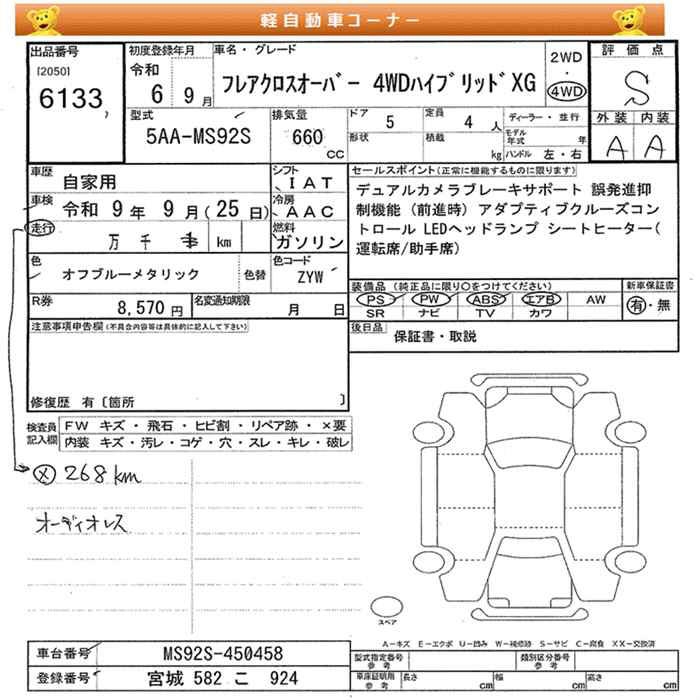 軽自動車コーナー
出品番号
[2050]
6133
初度登録年月
令和
6 9月
車名・グレード
フレアクロスオーバー 4WDハイブリッドXG
2WD
・
4WD
評価点
S
外装 内装
A A
型式
5AA-MS92S
排気量
660
CC
ドア 5
形状
定員 4 人
積載 kg
ディーラー・並行
モデル年式 年
ハンドル 左・右
車歴 自家用
シフト
IAT
車検 令和 9年 9月(25日)
冷房
AAC
走行 万 千 km
燃料
ガソリン
セールスポイント(正常に機能するものに限ります)
デュアルカメラブレーキサポート 誤発進抑
制機能(前進時)アダプティブクルーズコン
トロール LEDヘッドランプ シートヒーター(
運転席/助手席)
色 オフブルーメタリック 色替
色コード
ZYW
装備品(純正品に限り○をつけてください)
PS PW ABS エアB AW
SR ナビ TV カワ
新車保証書
有・無
R券 8,570円
名変通知期限 月 日
後日品 保証書・取説
注意事項申告欄(不具合内容等は具体的に記入して下さい)
修復歴 有〔箇所 〕
検査員
記入欄
FW キズ・飛石・ヒビ割・リペア跡・×要
内装 キズ・汚レ・コゲ・穴・スレ・キレ・破レ
268km
オーディオレス
スペア
A-キズ E-エクボ U-凹み W-補修跡 S-サビ C-腐食 XX-交換済
車台番号 MS92S-450458
登録番号 宮城 582 こ 924
型式指定番号
参考
類別区分番号
参考
車庫証明用
参考
長さ cm 幅 cm 高さ cm